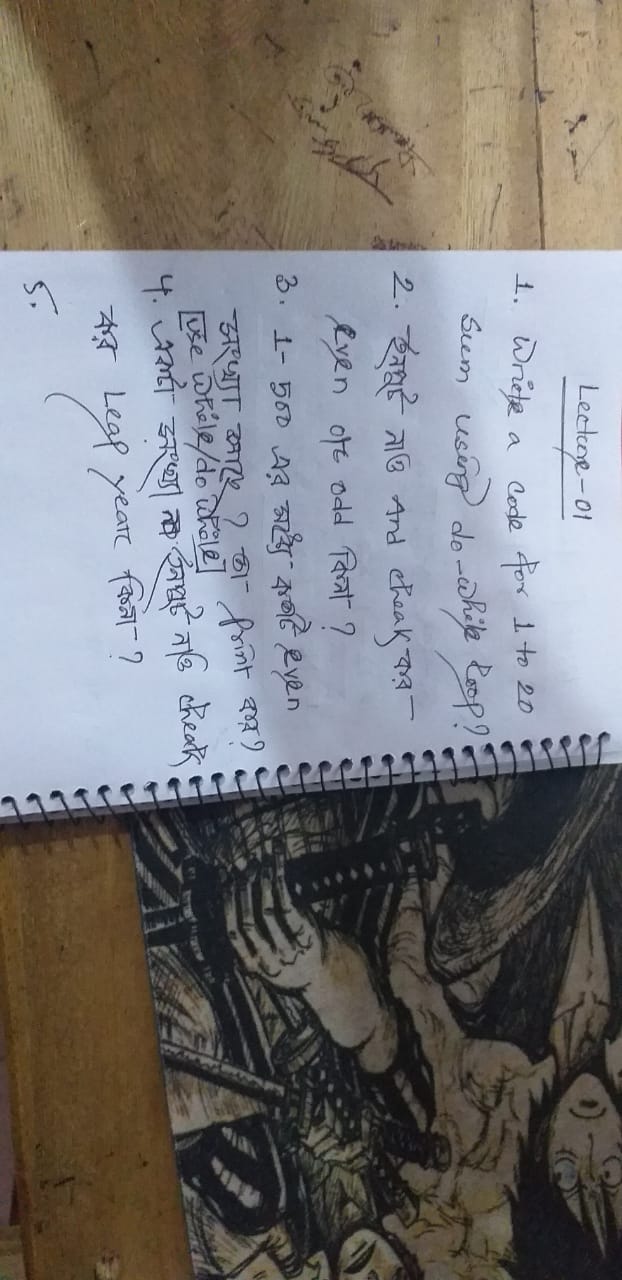 Lecture-01
1. Write a code for 1 to 20
sum using do-while loop?
2. ইনপুট নাও And cheak কর
even or odd কিনা ?
3. 1- 500 এর মধ্যে কতটি even
সংখ্যা আছে ? তা print কর?
[use while/do while]
4. একটা সংখ্যা ইনপুট নাও cheak
কর Leap year কিনা ?
5.